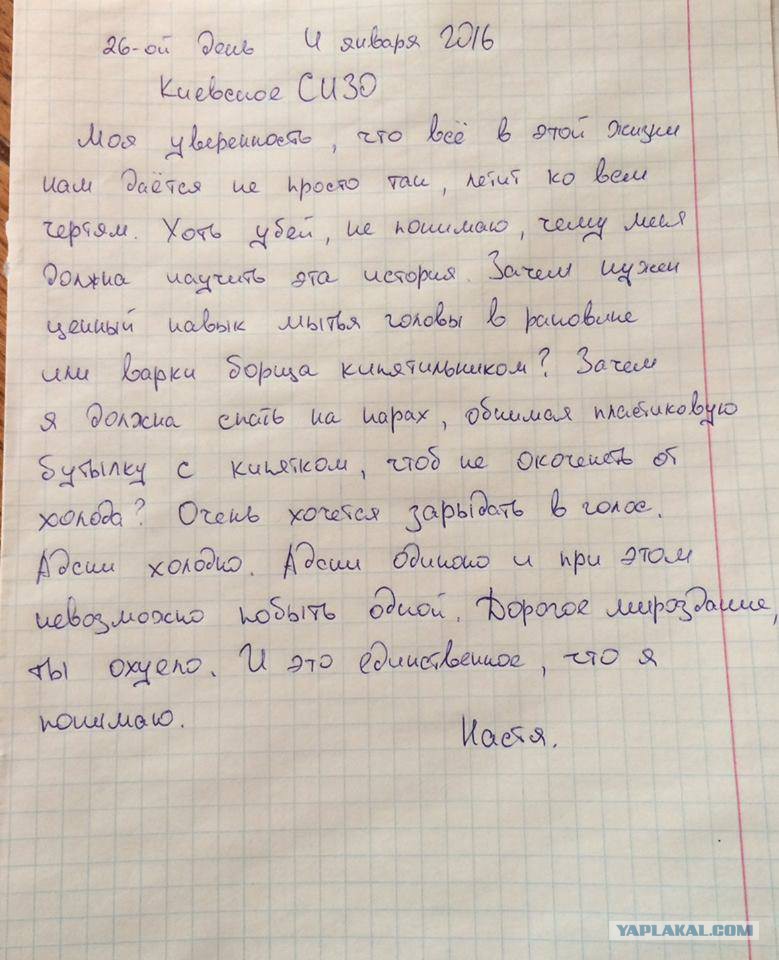 26-ой день 4 января 2016
Киевское СИЗО
Моя уверенность, что всё в этой жизни
нам даётся не просто так, летит ко всем
чертям. Хоть убей, не понимаю, чему меня
должна научить эта история. Зачем нужен
ценный навык мытья головы в раковине
или варки борща кипятильником? Зачем
я должна спать на нарах, обнимая пластиковую
бутылку с кипятком, чтоб не окоченеть от
холода? Очень хочется зарыдать в голос.
Адски холодно. Адски одиноко и при этом
невозможно побыть одной. Дорогое мироздание,
ты охуело. И это единственное, что я
понимаю.
Настя.
YAPLAKAL.COM